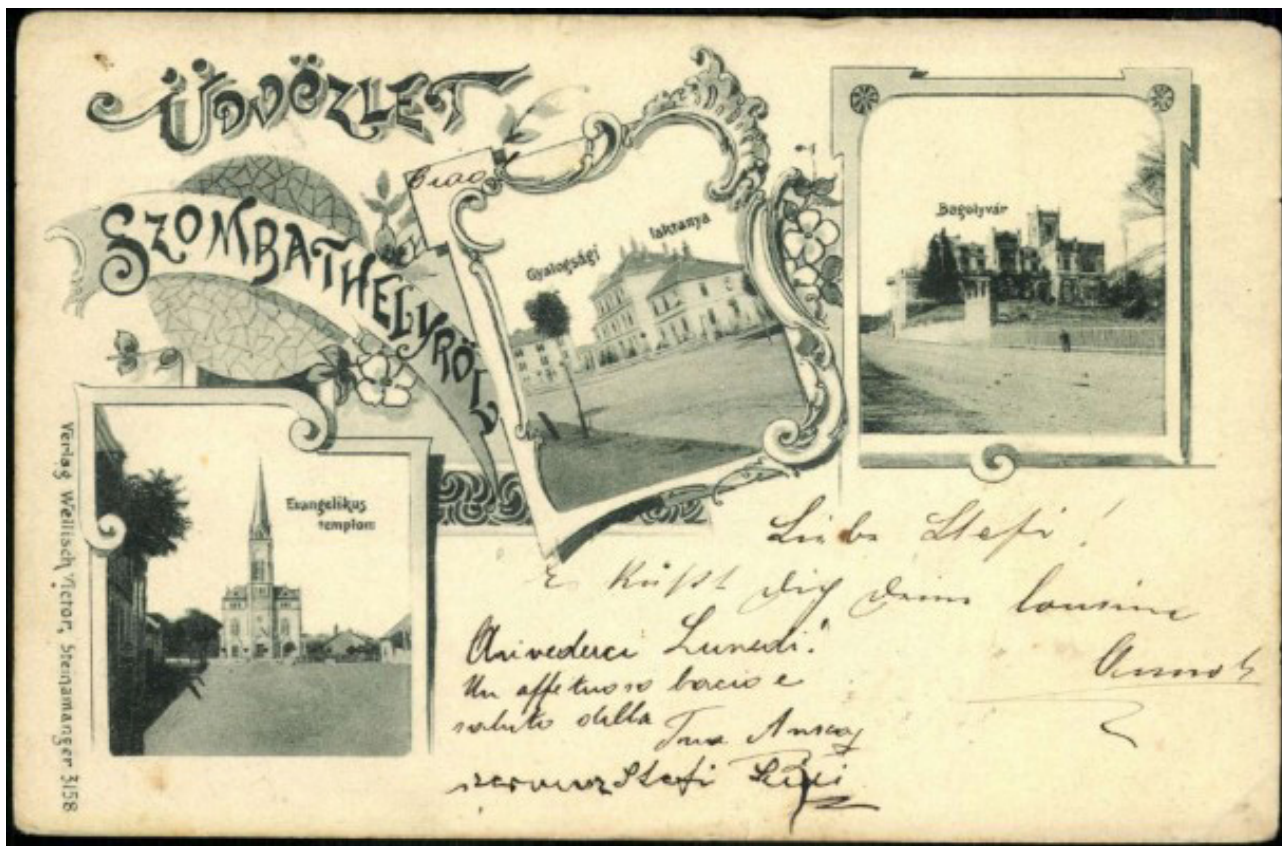 ÜDVÖZLET
SZOMBATHELYRŐL
Gyalogsági laktanya
Bagolyvár
Evangelikus
templom
Verlag Wellisch Victor, Steinamanger 3158
Liebe Stefi!
Es küßt dich deine Cousine
Arivederci Lunedi!
Un affetuoso bacio e
saluto della
Tua
szervusz Stefi